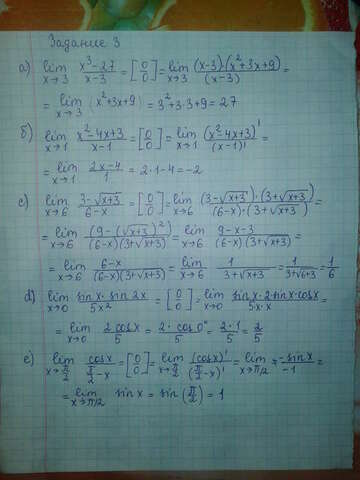 Задание 3
а) lim x→3 (x³-27)/(x-3) = [0/0] = lim x→3 (x-3)·(x²+3x+9)/(x-3) =
= lim x→3 (x²+3x+9) = 3²+3·3+9 = 27
б) lim x→1 (x²-4x+3)/(x-1) = [0/0] = lim x→1 (x²-4x+3)'/(x-1)' =
= lim x→1 (2x-4)/1 = 2·1-4 = -2
c) lim x→6 (3-√(x+3))/(6-x) = [0/0] = lim x→6 (3-√(x+3))·(3+√(x+3))/((6-x)·(3+√(x+3))) =
= lim x→6 (9-(√(x+3))²)/((6-x)(3+√(x+3))) = lim x→6 (9-x-3)/((6-x)(3+√(x+3))) =
= lim x→6 (6-x)/((6-x)(3+√(x+3))) = lim x→6 1/(3+√(x+3)) = 1/(3+√(6+3)) = 1/6
d) lim x→0 (sinx·sin2x)/(5x²) = [0/0] = lim x→0 (sinx·2sinx·cosx)/(5·x·x) =
= lim x→0 (2cosx)/5 = (2·cos0°)/5 = (2·1)/5 = 2/5
e) lim x→π/2 cosx/(π/2-x) = [0/0] = lim x→π/2 (cosx)'/(π/2-x)' = lim x→π/2 (-sinx)/(-1) =
= lim x→π/2 sinx = sin(π/2) = 1